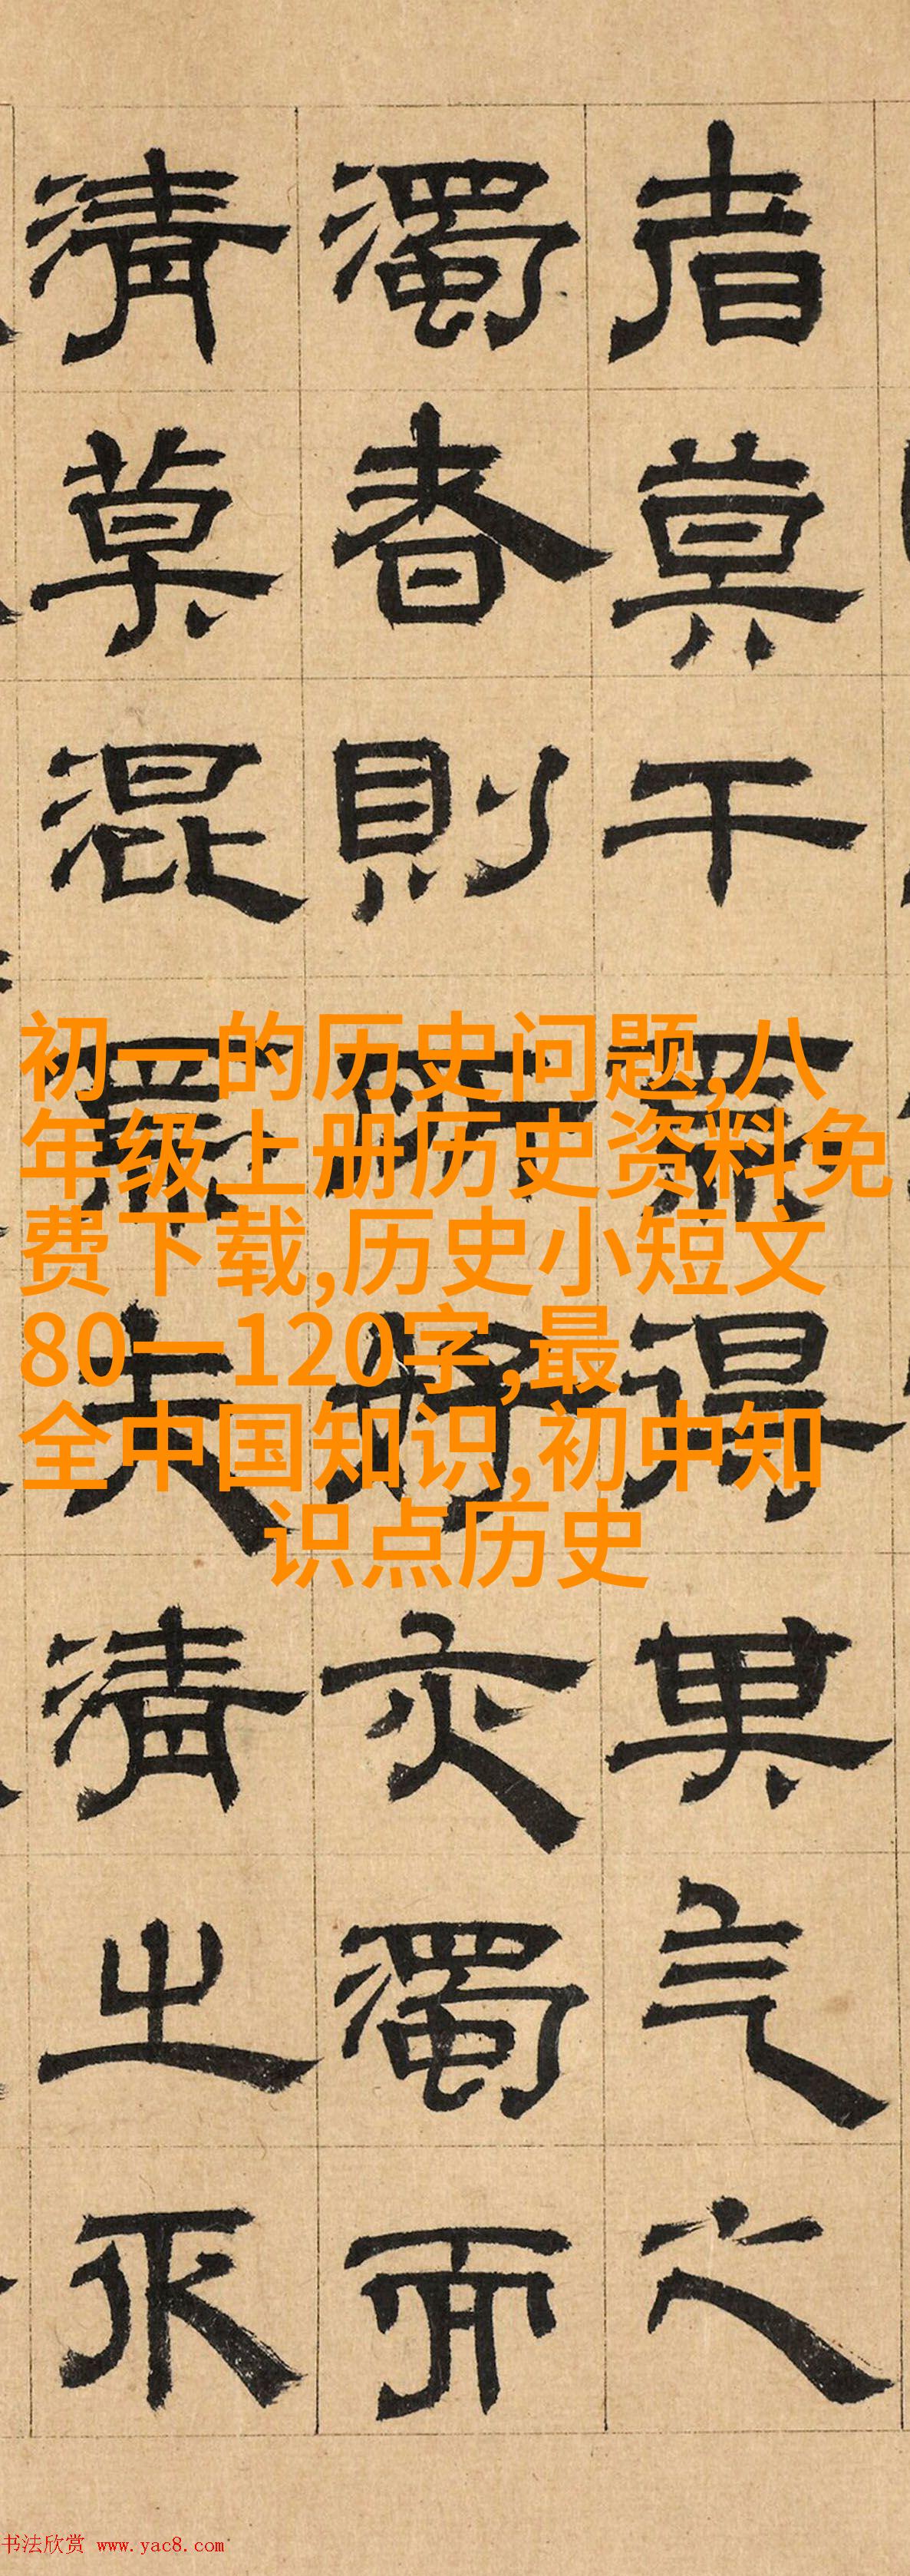 者莫干得其气之
濁者則得亦濁而
清莫混夫清之
初一的历史问题,八
年级上册历史资料免
费下载,历史小短文
80一120字,最
全中国知识,初中知
识点历史
书法欣赏 www.yac8.com